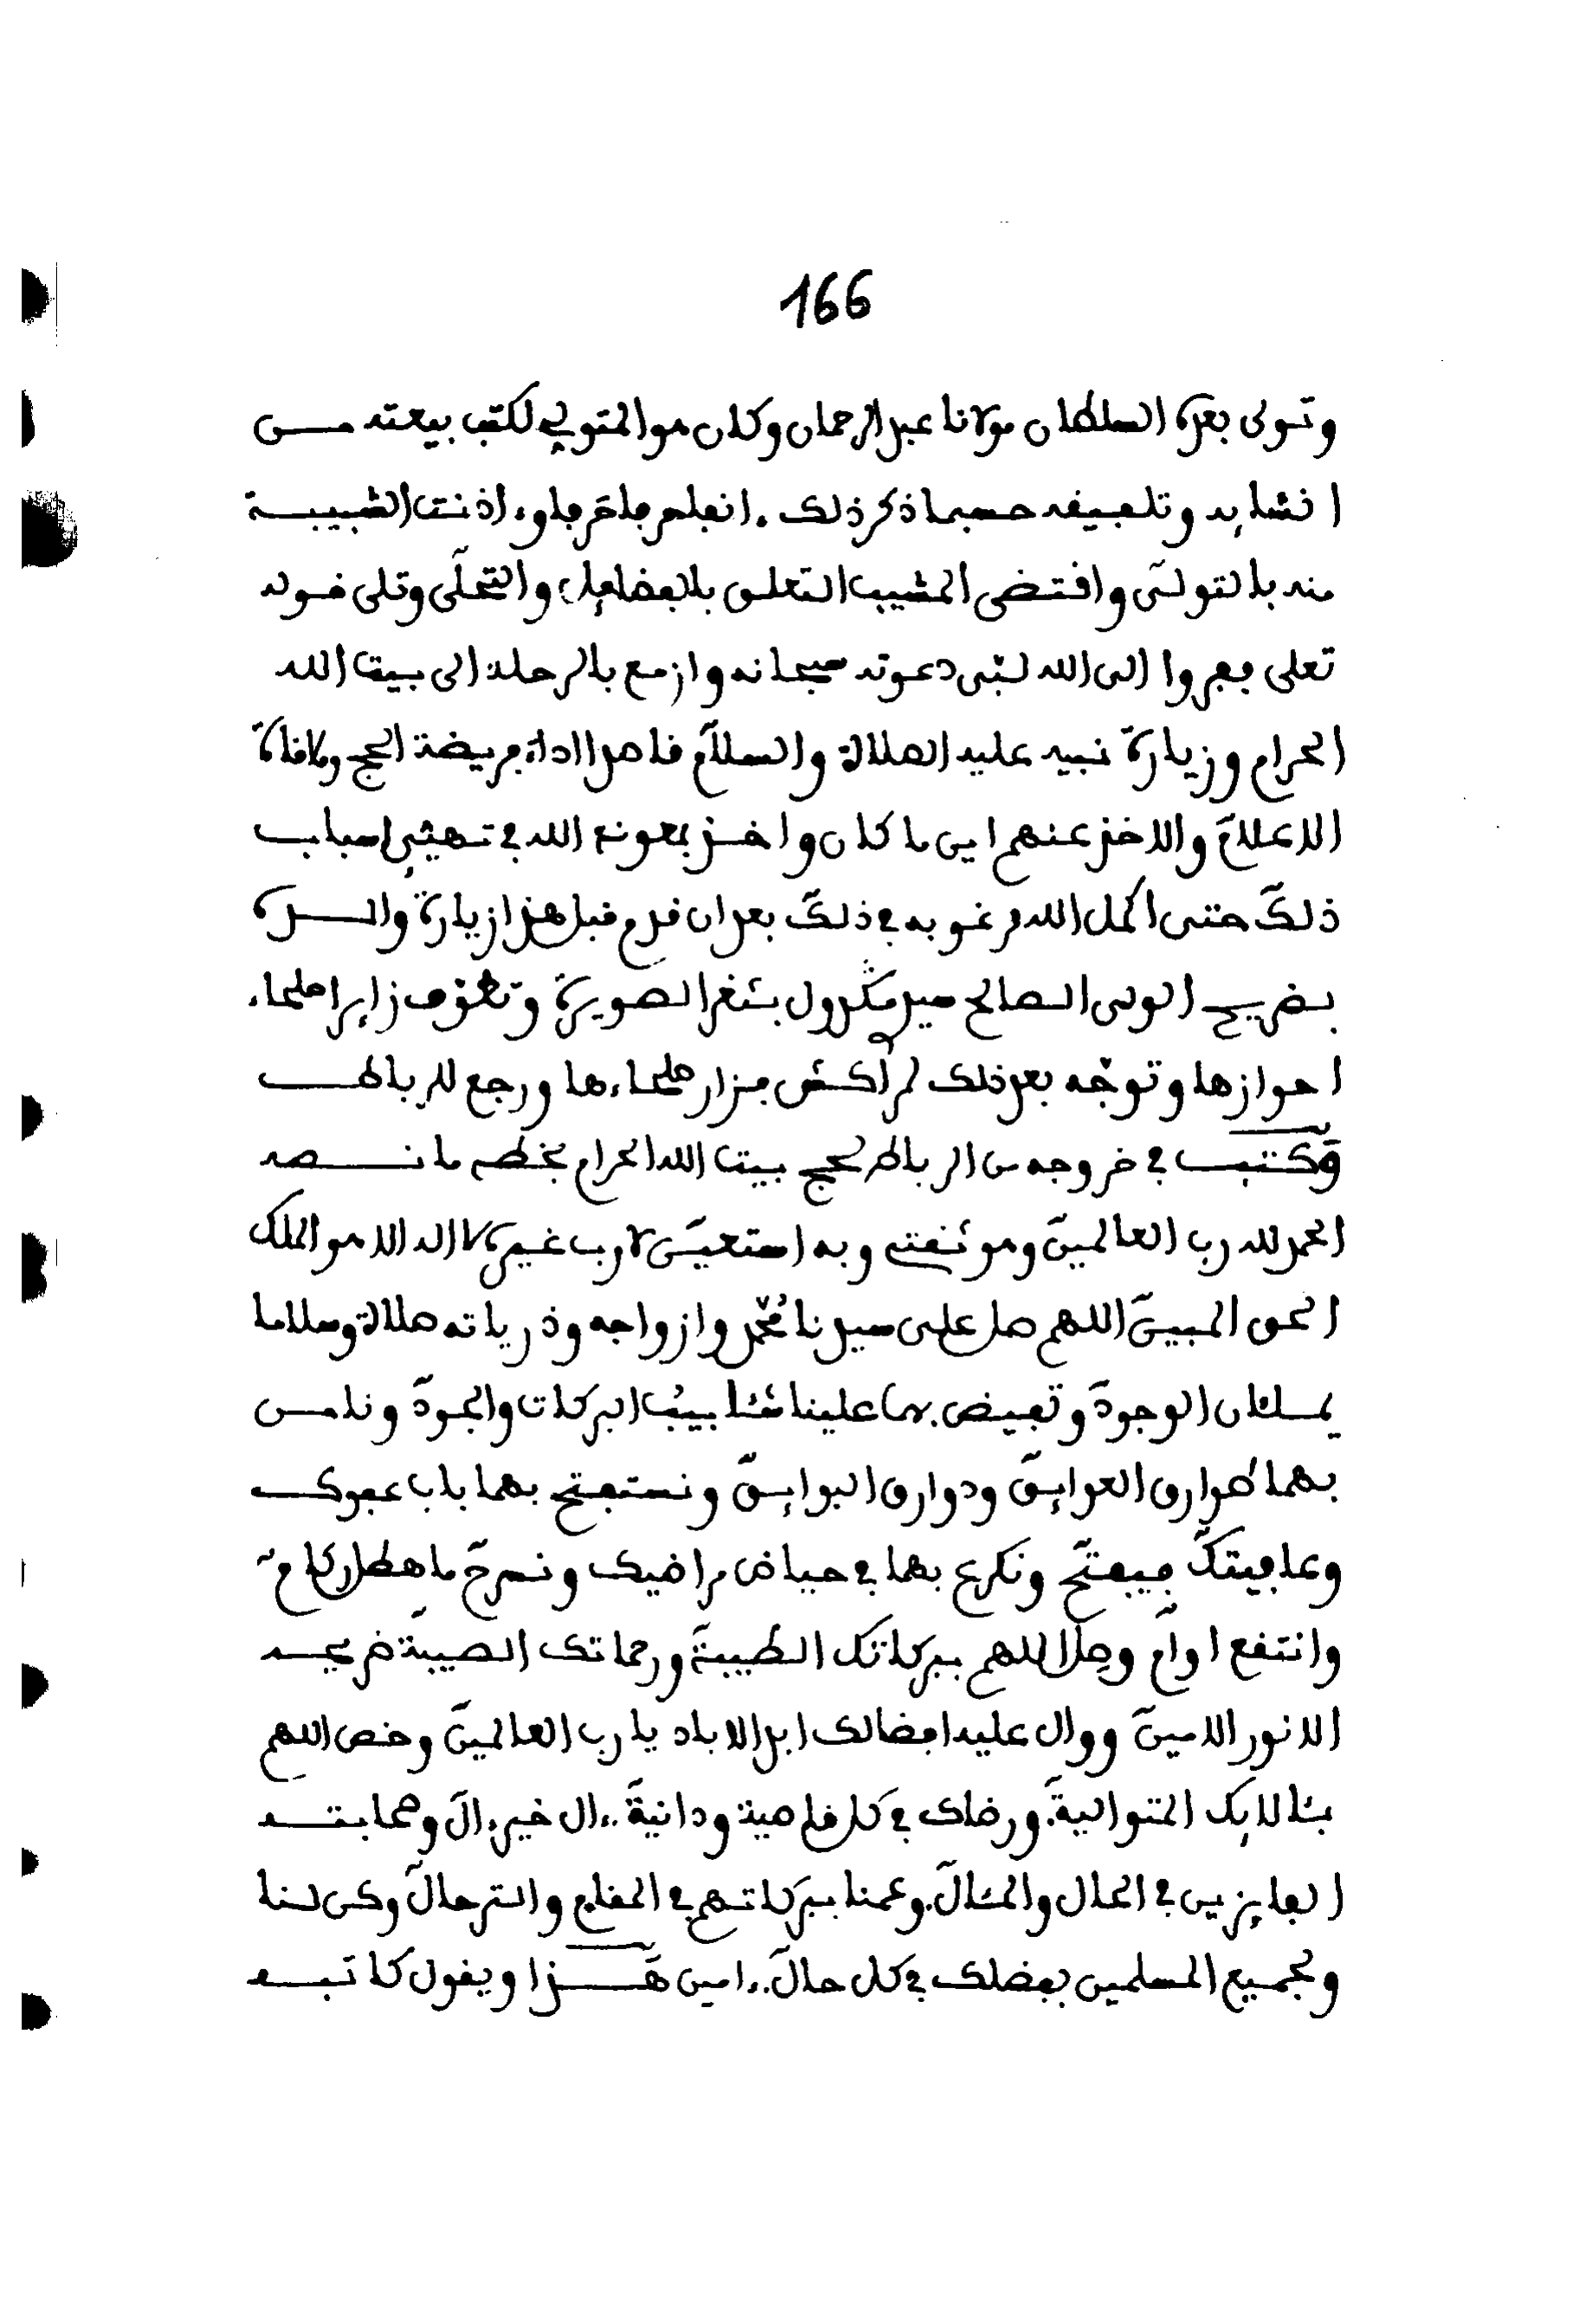 166
وتولى بعده السلطان مولانا عبد الرحمان وكان هو المتولي لكتب بيعته من
انشايه وتلفيفه حسبما ذكر ذلك. انفلم فاخر فاوء اذنت الشبيبة
منه بالتولى واقتضى المشيب التعلق بالفضايل والتحلى وتلى قوله
تعلى ففروا الى الله لبّى دعوته سبحانه وازمع بالرحلة الى بيت الله
الحرام وزيارة نبيه عليه الصلاة والسلام قاصدا اداء فريضة الحج وملاقاة
الاعلام والاخذ عنهم اين ما كان واخذ بمعونة الله في تهيئ اسباب
ذلك حتى اكمل الله مرغوبه في ذلك بعد ان قدم قبل هذا زيارة والده
بضريح الولى الصالح سيد مكدول بثغر الصويرة وتطوف زايرا صلحاء
احوازها وتوجه بعد ذلك لمراكش فزار صلحاءها ورجع للرباط
وكتب في خروجه من الرباط لحج بيت الله الحرام بخطه ما نصه
الحمد لله رب العالمين وهو ثقتي وبه استعين لا رب غيره لا اله الا هو الملك
الحق المبين اللهم صل على سيدنا محمد وازواجه وذرياته صلاة وسلاما
يملئان الوجود وتفيض بهما علينا شئابيب البركات والجود ونامن
بهما طوارق العوايق ودوارق البوايق ونستفتح بهما باب عفوك
وعافيتك فيفتح ونكرع بهما في حياض مراضيك ونسرح ما هطل ركام
وانتفع اوام وصل اللهم ببركاتك الطيبة ورحماتك الصيبة ضريحه
الانور الامين ووال عليه افضالك ابد الاباد يا رب العالمين وخص اللهم
بئالايك المتوالية. ورضاك في كل قاصية ودانية.. ءال خير ءال وصحابته
الفايزين في الحال والمئال. وعمنا ببركاتهم في المقام والترحال وكن لنا
ولجميع المسلمين بفضلك في كل حال.. ءامين هذا ويقول كاتبه